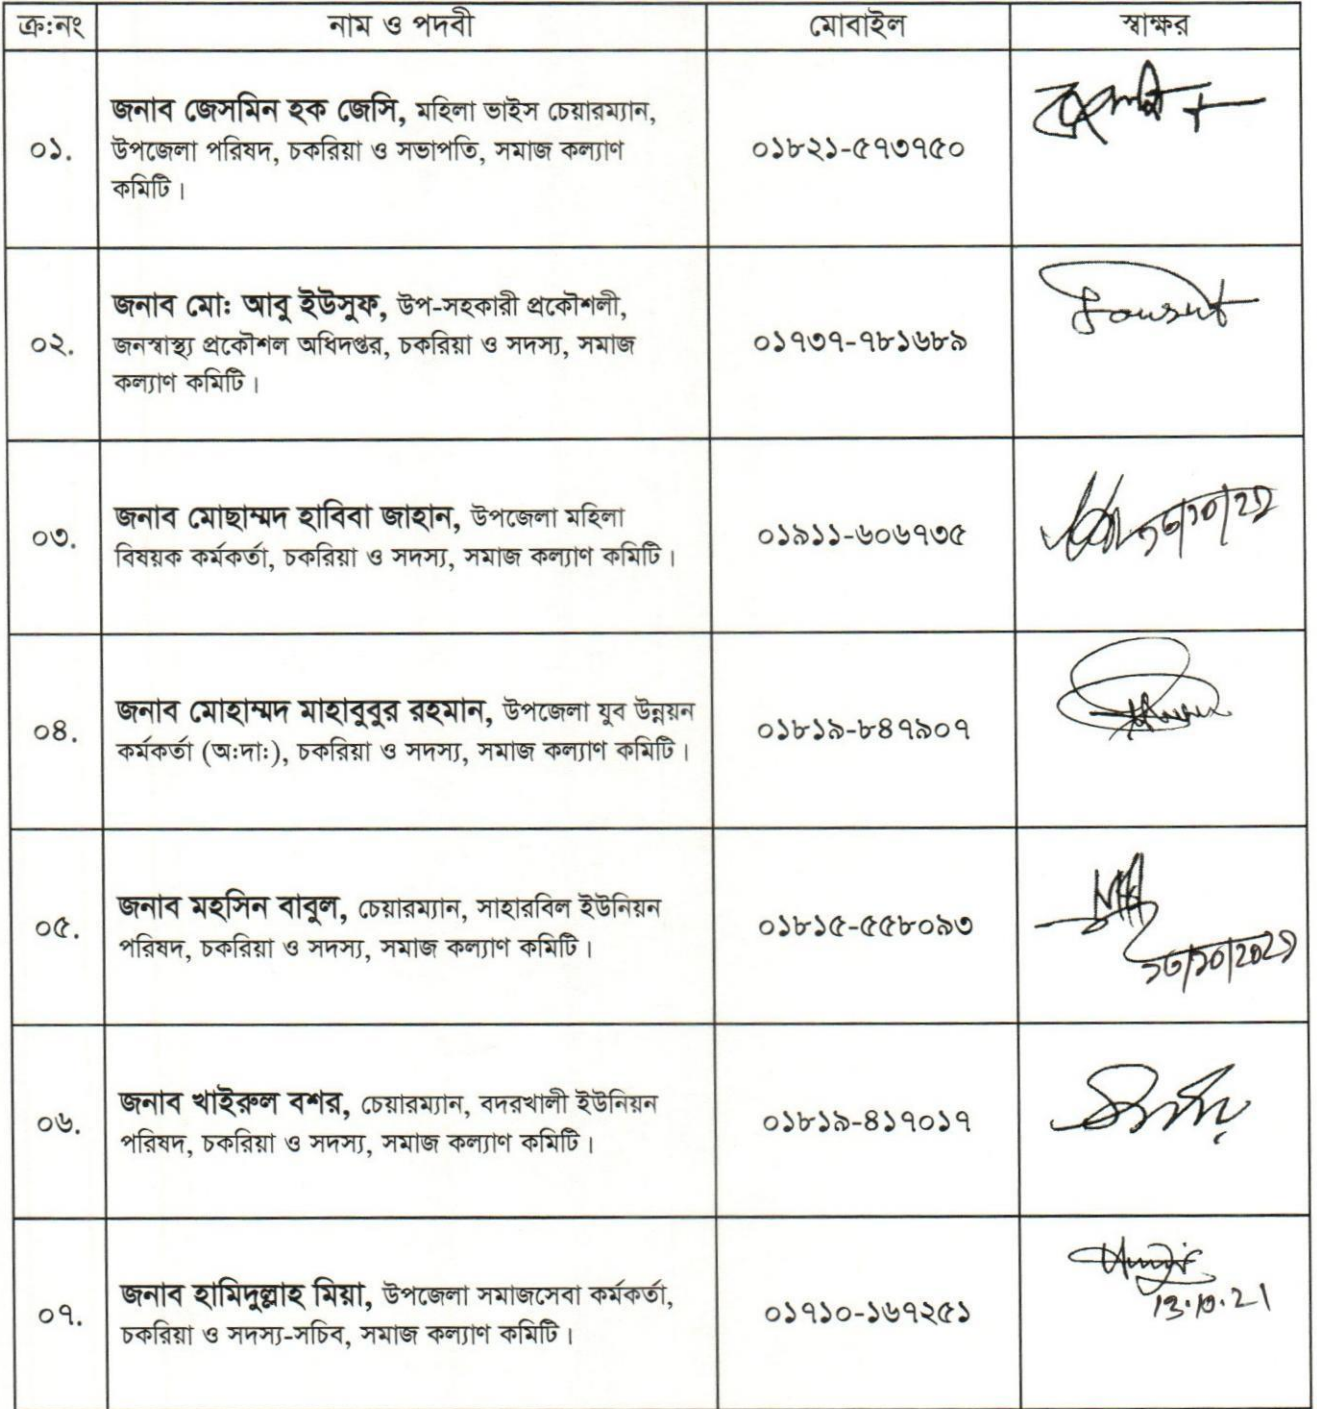 ক্র:নং নাম ও পদবী মোবাইল স্বাক্ষর
জনাব জেসমিন হক জেসি, মহিলা ভাইস চেয়ারম্যান,
০১. উপজেলা পরিষদ, চকরিয়া ও সভাপতি, সমাজ কল্যাণ ০১৮২১-৫৭৩৭৫০
কমিটি।
জনাব মো: আবু ইউসুফ, উপ-সহকারী প্রকৌশলী,
০২. জনস্বাস্থ্য প্রকৌশল অধিদপ্তর, চকরিয়া ও সদস্য, সমাজ ০১৭৩৭-৭৮১৬৮৯
কল্যাণ কমিটি।
জনাব মোছাম্মদ হাবিবা জাহান, উপজেলা মহিলা
০৩. বিষয়ক কর্মকর্তা, চকরিয়া ও সদস্য, সমাজ কল্যাণ কমিটি। ০১৯১১-৬০৬৭৩৫ ১৩/১০/২১
জনাব মোহাম্মদ মাহাবুবুর রহমান, উপজেলা যুব উন্নয়ন
০৪. কর্মকর্তা (অ:দা:), চকরিয়া ও সদস্য, সমাজ কল্যাণ কমিটি। ০১৮১৯-৮৪৭৯০৭
জনাব মহসিন বাবুল, চেয়ারম্যান, সাহারবিল ইউনিয়ন
০৫. পরিষদ, চকরিয়া ও সদস্য, সমাজ কল্যাণ কমিটি। ০১৮১৫-৫৫৮০৯৩
১৩/১০/২০২১
জনাব খাইরুল বশর, চেয়ারম্যান, বদরখালী ইউনিয়ন
০৬. পরিষদ, চকরিয়া ও সদস্য, সমাজ কল্যাণ কমিটি। ০১৮১৯-৪১৭০১৭
জনাব হামিদুল্লাহ মিয়া, উপজেলা সমাজসেবা কর্মকর্তা,
০৭. চকরিয়া ও সদস্য-সচিব, সমাজ কল্যাণ কমিটি। ০১৭১০-১৬৭২৫১ 13.10.21